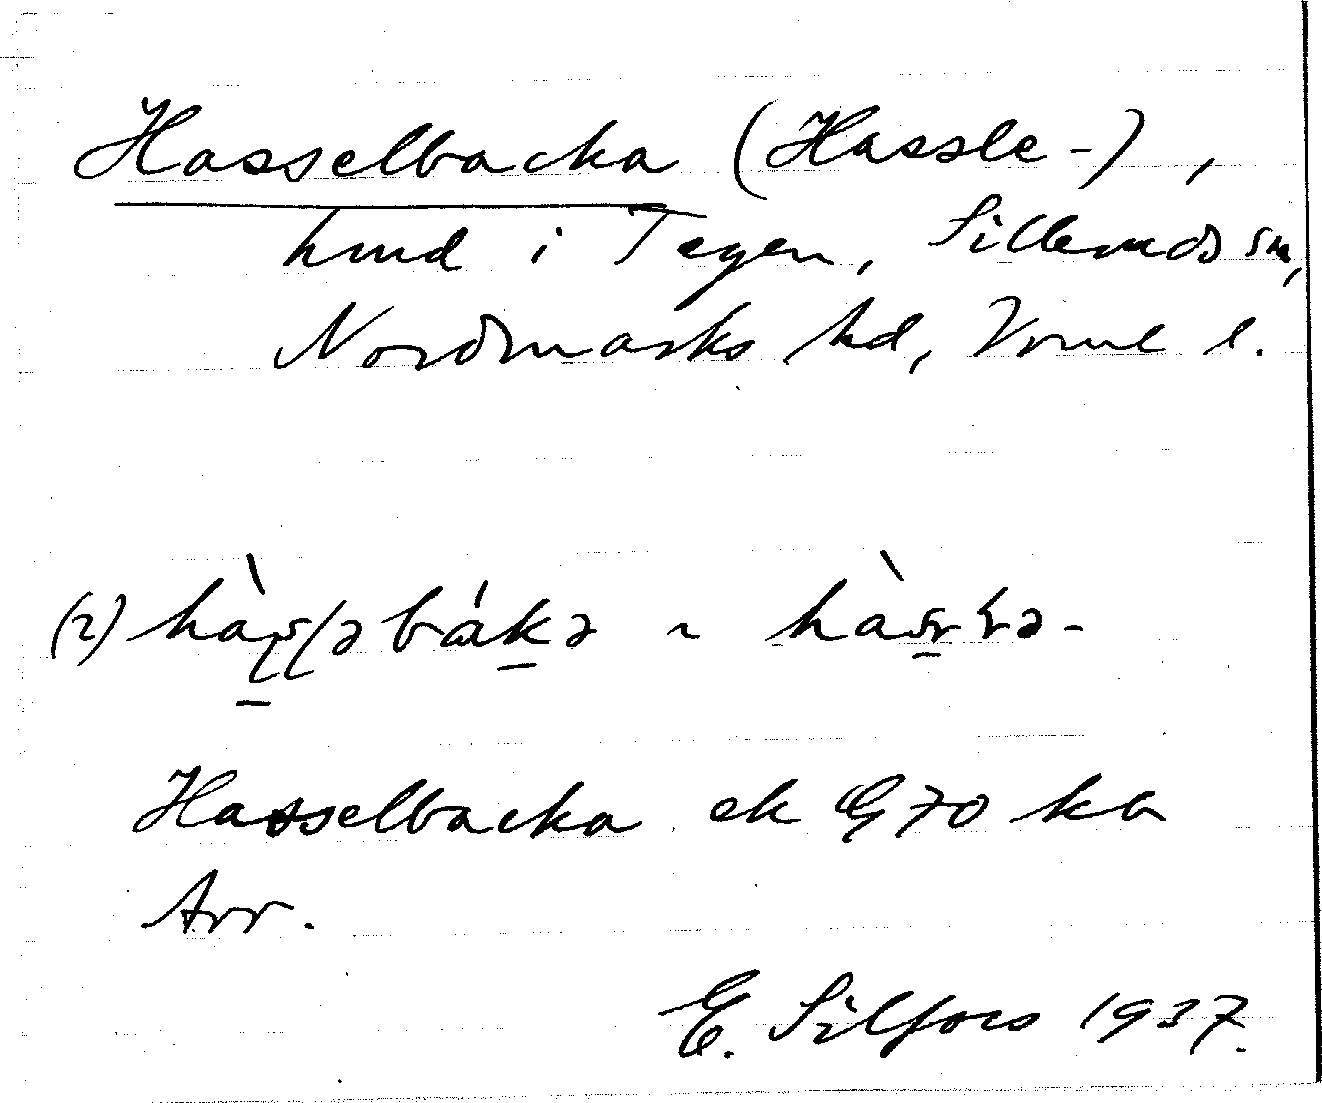 Hasselbacka (Hassle-),
hmd i Tegen, Sillemds sn,
Nordmarks hd, Vrml l.
(2)
Hasselbacka ek G70 kb
Arr.
E. Silfors 1937.